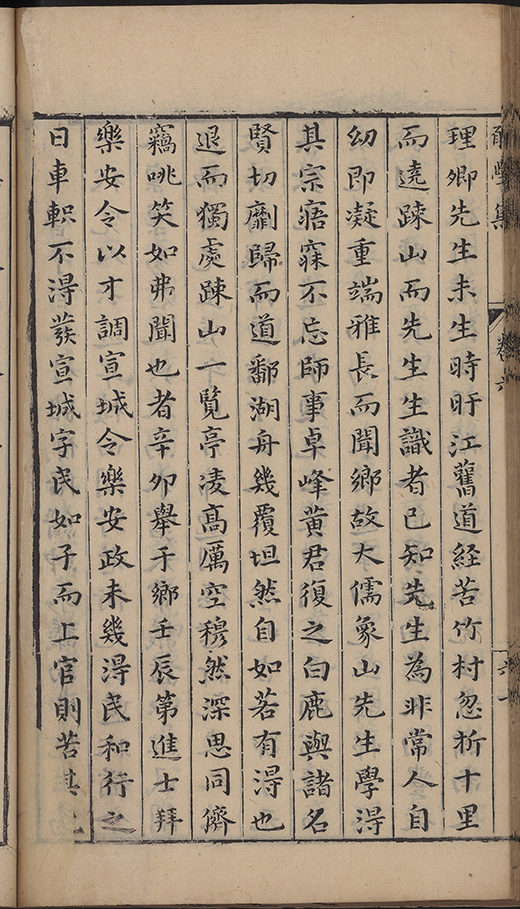 卷六
理卿先生未生時盱江舊道経苦竹村忽折十里
而遶踈山而先生生識者已知先生為非常人自
幼即凝重端雅長而聞鄉故大儒象山先生學淂
其宗寤寐不忘師事卓峰黄君復之白鹿與諸名
賢切劘歸而道鄱湖舟幾覆坦然自如若有淂也
退而獨處踈山一覧亭凌髙厲空穆然深思同儕
竊咷笑如弗聞也者辛卯舉于鄉壬辰第進士拜
樂安令以才調宣城令樂安政未幾淂民和行之
日車軹不淂發宣城字民如子而上官則苦其